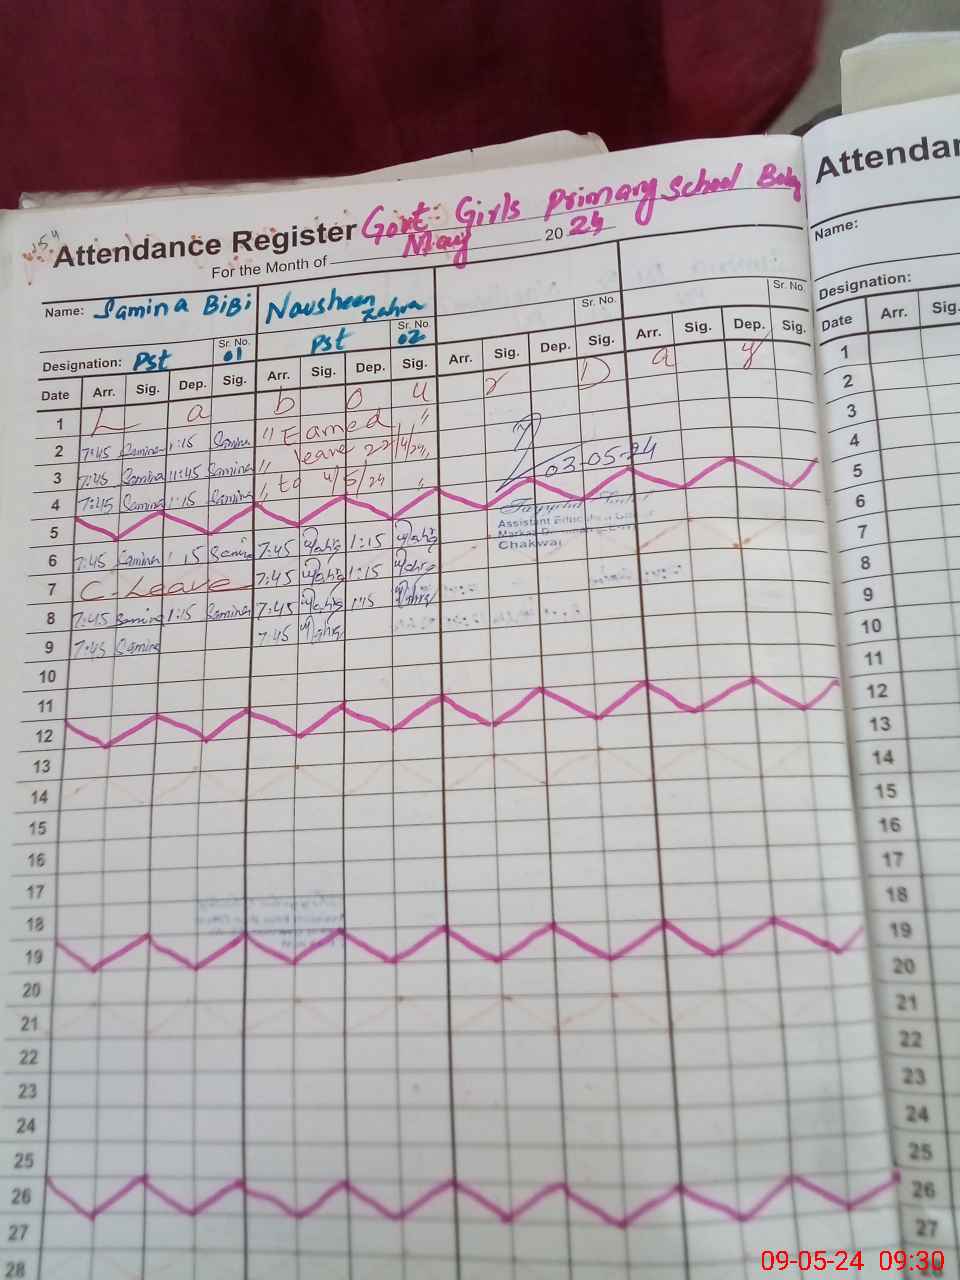 Attendance Register Govt: Girls Primary School
For the Month of May 2024
Name: Samina BiBi Nausheen Zahra
Sr. No. Sr. No. Sr. No. Sr. No.
Designation: Pst 01 Pst 02
Date Arr. Sig. Dep. Sig. Arr. Sig. Dep. Sig. Arr. Sig. Dep. Sig. Arr. Sig. Dep. Sig.
1 L a b o u r D a y
2 7:45 Samina 1:15 Samina " Earned "
3 7:45 Samina 11:45 Samina " leave 22/4/24 "
4 7:45 Samina 1:15 Samina " to 4/5/24 "
03-05-24
5
Assistant Education Officer
Markaz
Chakwal
6 7:45 Samina 1:15 Samina 7:45 Zahra 1:15 Zahra
7 C-Leave 7:45 Zahra 1:15 Zahra
8 7:45 Samina 1:15 Samina 7:45 Zahra 1:15 Zahra
9 7:45 Samina 7:45 Zahra
10
11
12
13
14
15
16
17
18
19
20
21
22
23
24
25
26
27
28
Name:
Designation:
Date Arr. Sig.
1
2
3
4
5
6
7
8
9
10
11
12
13
14
15
16
17
18
19
20
21
22
23
24
25
26
27
09-05-24 09:30